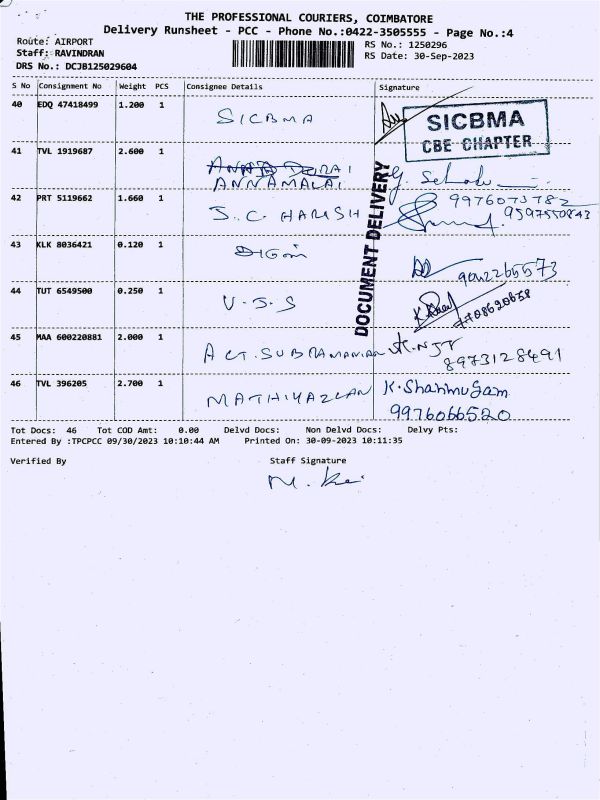 THE PROFESSIONAL COURIERS, COIMBATORE
Delivery Runsheet - PCC - Phone No.:0422-3505555 - Page No.:4
Route: AIRPORT
RS No.: 1250296
Staff: RAVINDRAN
RS Date: 30-Sep-2023
DRS No.: DCJB125029604
S No Consignment No Weight PCS Consignee Details Signature
40 EDQ 47418499 1.200 1 SICBMA
SICBMA
CBE CHAPTER
41 TVL 1919687 2.600 1
ANNAMALAI
42 PRT 5119662 1.660 1 S.C. HARISH
9597550843
DOCUMENT DELIVERY
43 KLK 8036421 0.120 1
44 TUT 6549500 0.250 1 V.S.S
45 MAA 600220881 2.000 1 SUBRAMANIAN
8973128491
46 TVL 396205 2.700 1 K.Shanmugam
9976066520
Tot Docs: 46 Tot COD Amt: 0.00 Delvd Docs: Non Delvd Docs: Delvy Pts:
Entered By :TPCPCC 09/30/2023 10:10:44 AM Printed On: 30-09-2023 10:11:35
Verified By Staff Signature